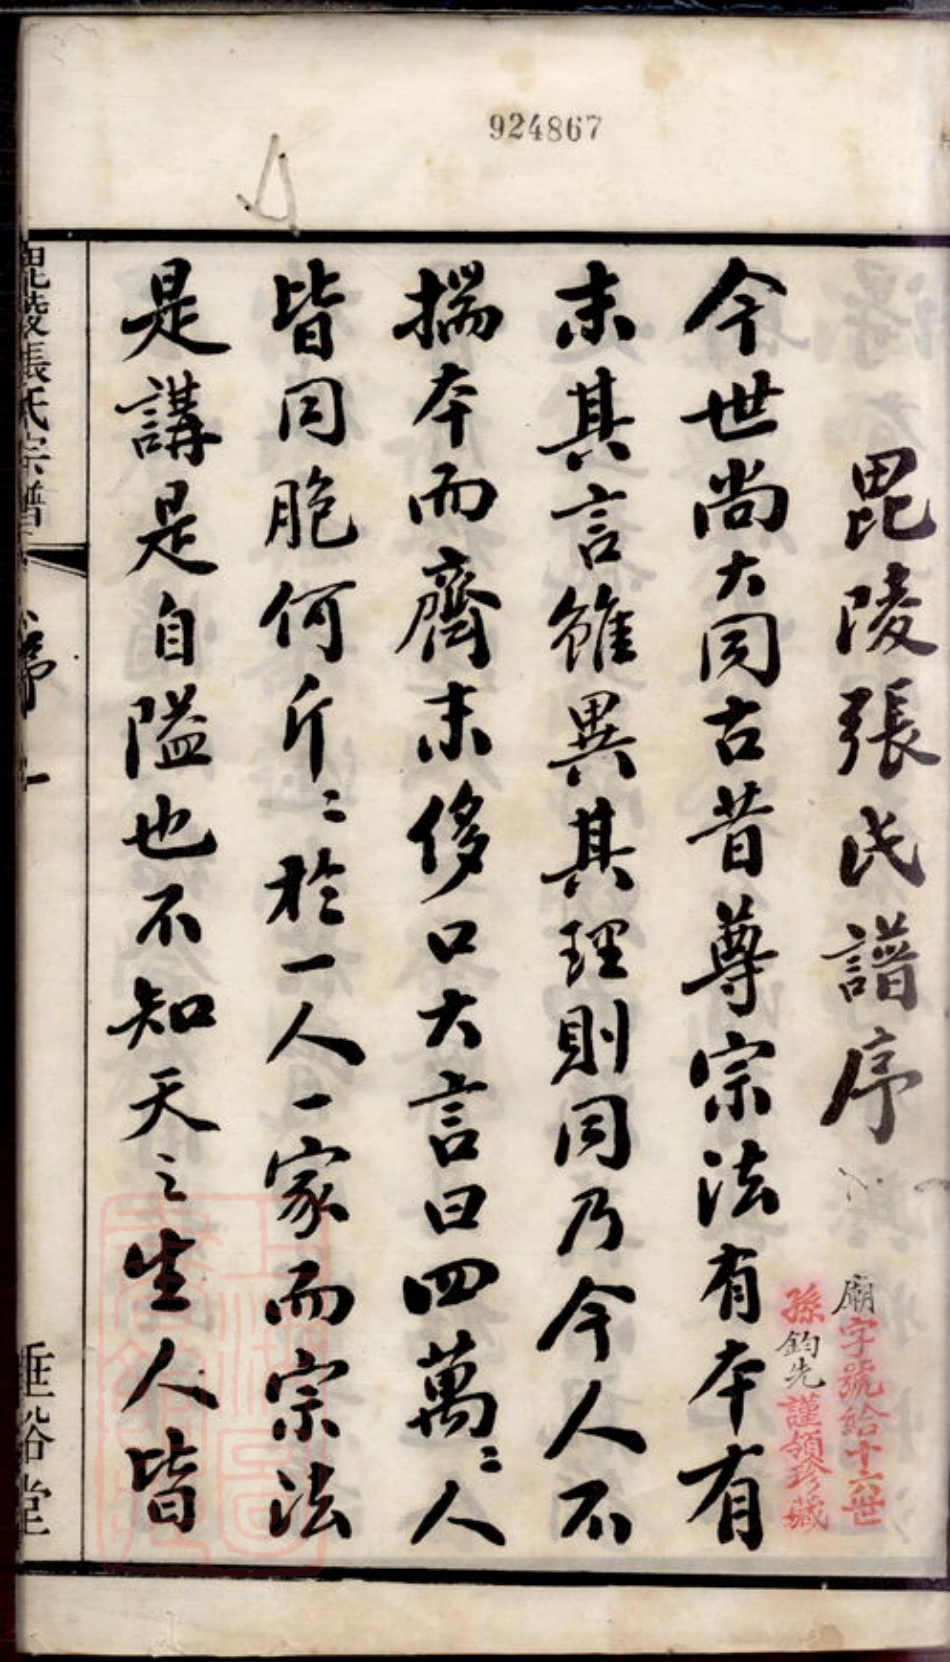 924867
毘陵張氏譜序
廟字號給十六世
孫鈞先謹領珍藏
今世尚大同古昔尊宗法有本有
末其言雖異其理則同乃今人不
揣本而齊末侈口大言曰四萬〻人
皆同胞何斤〻於一人一家而宗法
是講是自隘也不知天之生人皆
毘陵張氏宗譜
序
一
垂裕堂